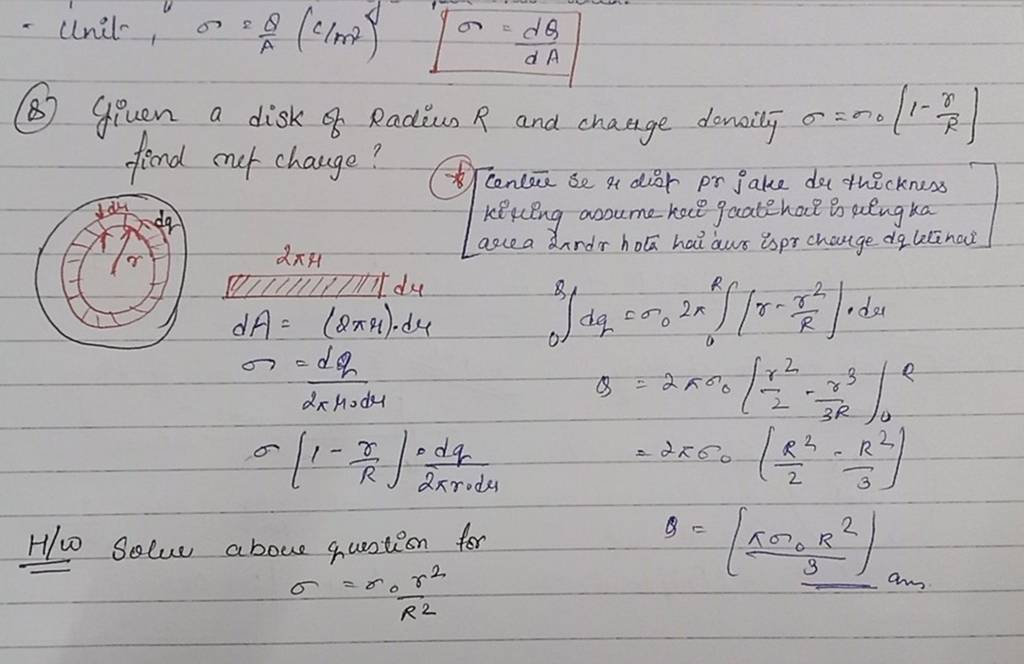 - Unit, σ = Q/A (C/m²) σ = dQ/dA
Q) Given a disk of Radius R and charge density σ = σ₀ [1 - r/R]
find net charge?
* Centre se r dist pr jake dr thickness
ki ring assume kari jaati hai is ring ka
area 2πrdr hota hai aur is pr charge dq lete hai
dr dq
r
2πr
dr
dA = (2πr).dr
σ = dq/2πr.dr
σ [1 - r/R] = dq/2πr.dr
₀∫^Q dq = σ₀ 2π ₀∫^R [r - r²/R].dr
Q = 2πσ₀ [r²/2 - r³/3R]₀^R
= 2πσ₀ [R²/2 - R²/3]
Q = [πσ₀R²/3] ans.
H/W Solve above question for
σ = σ₀ r²/R²